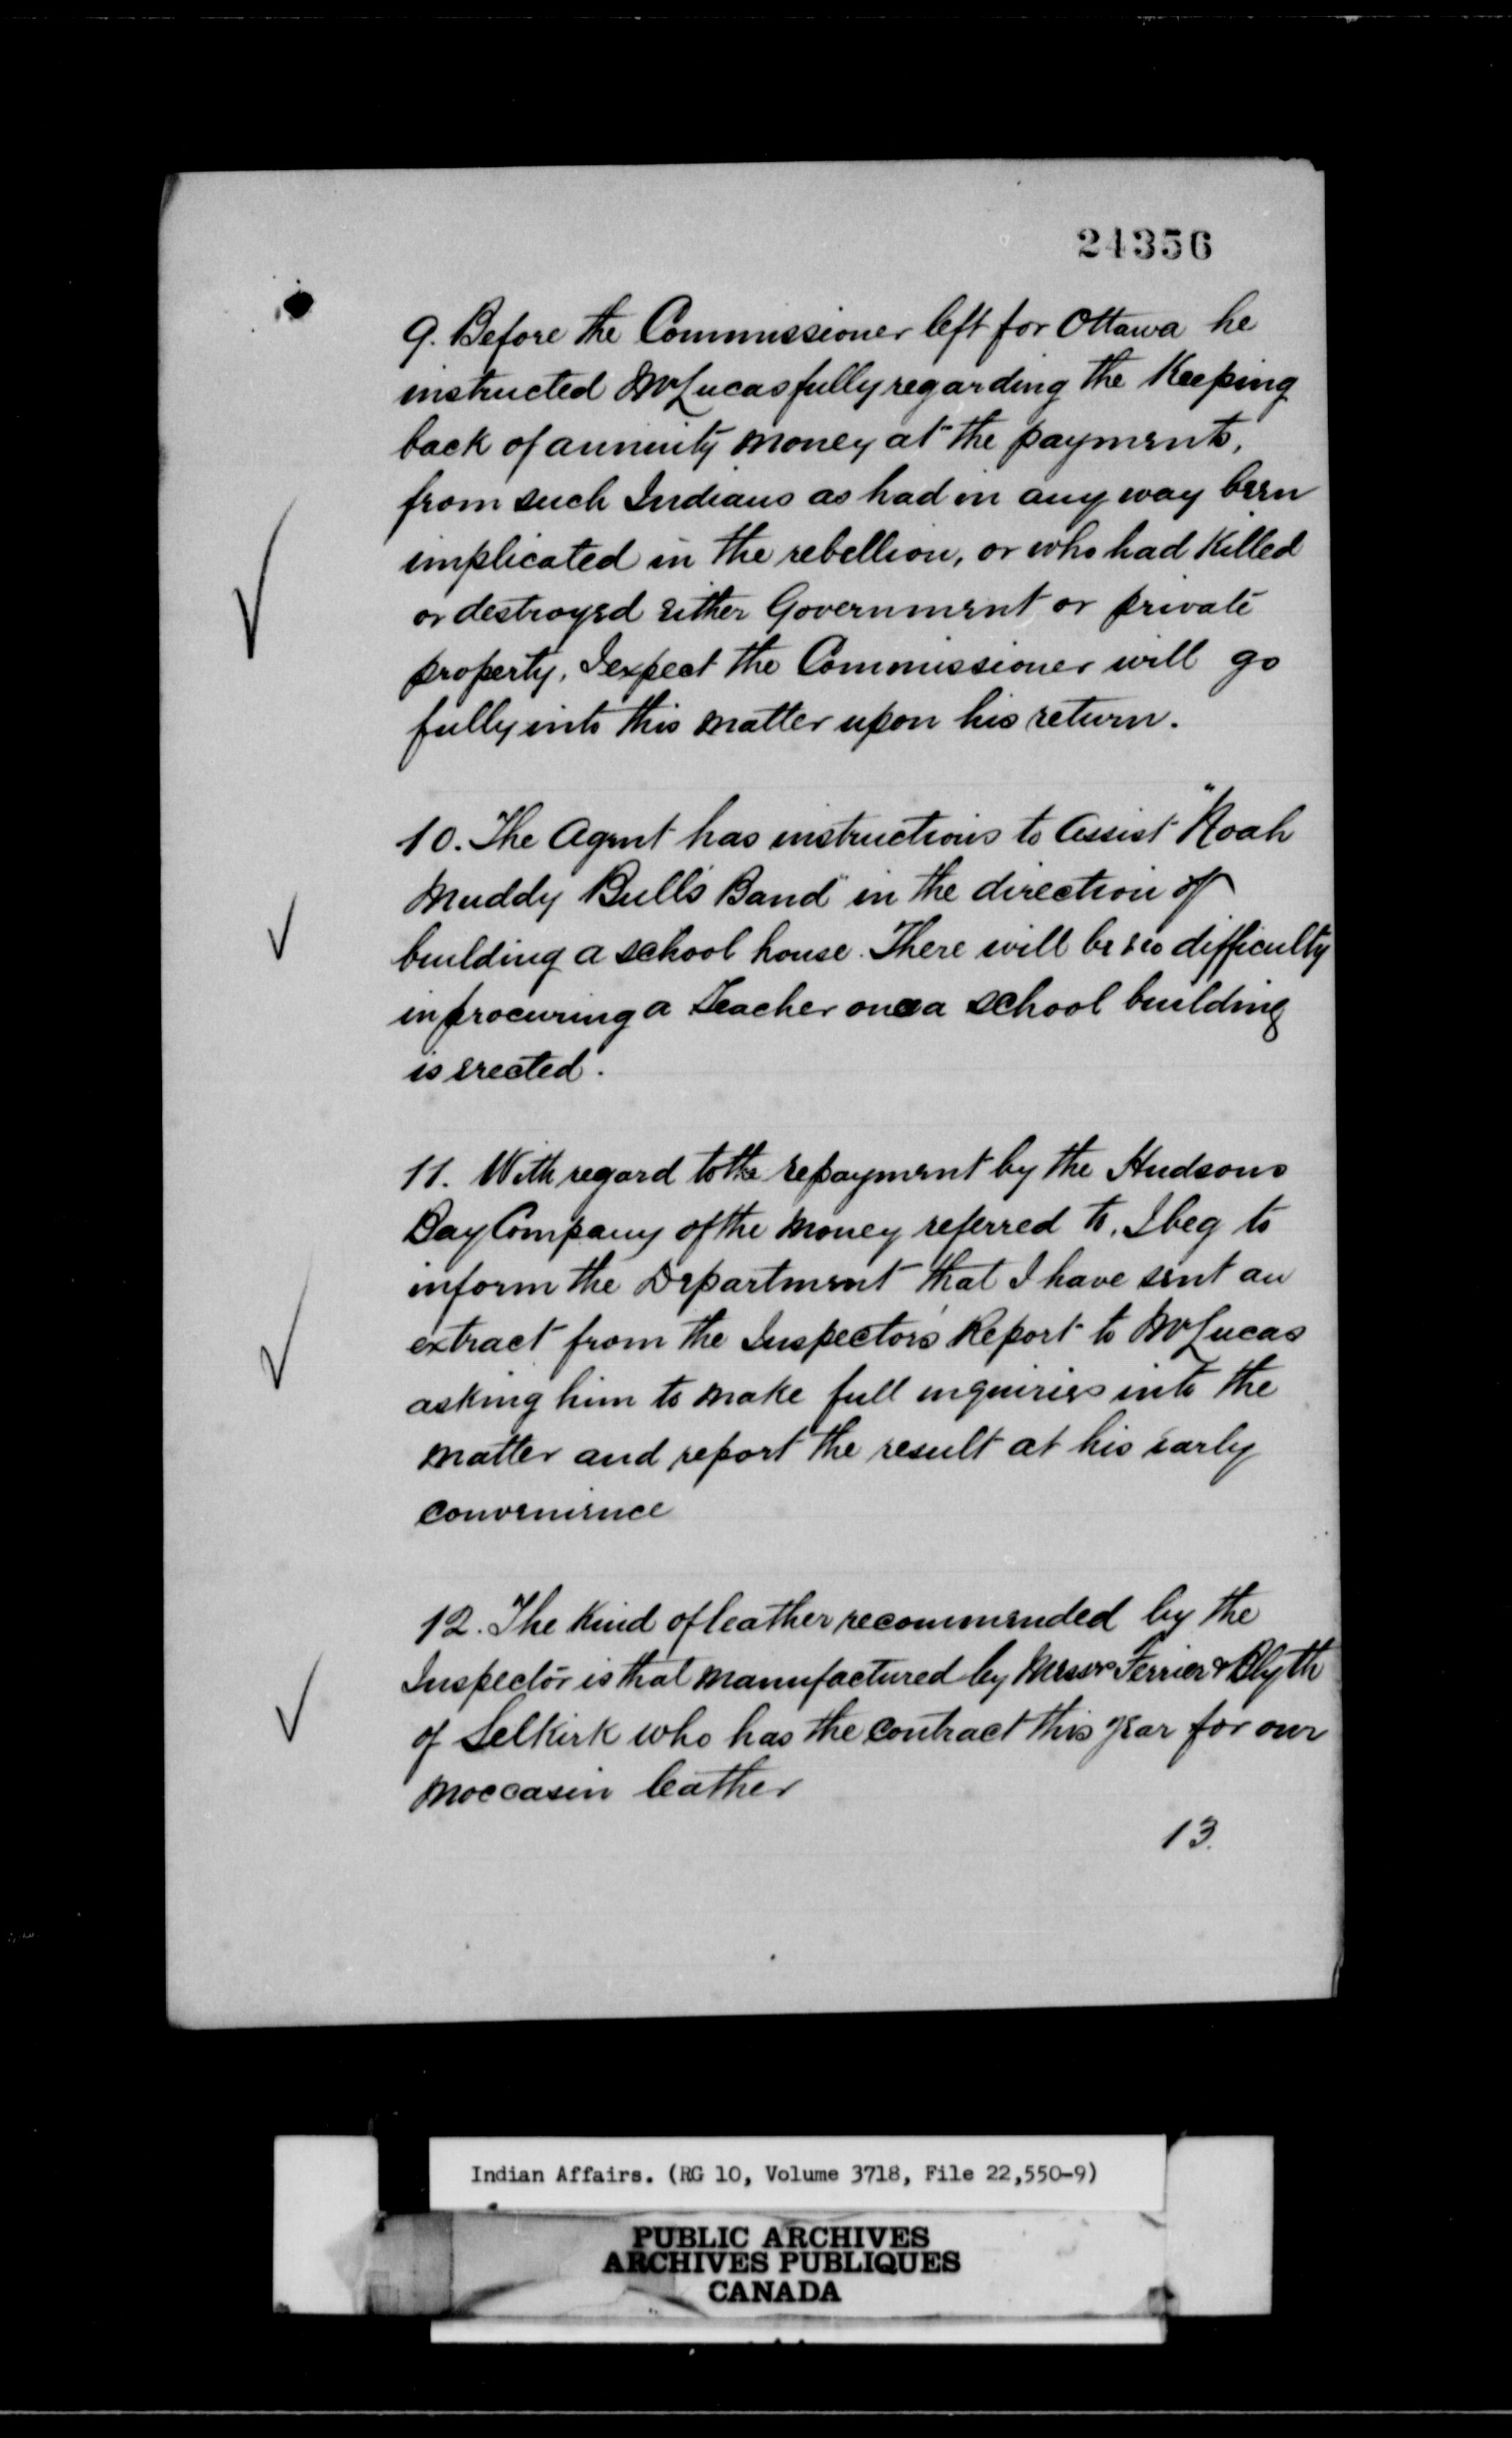 24356
9. Before the Commissioner left for Ottawa he
instructed Mr Lucas fully regarding the Keeping
back of annuity money at the payments,
from such Indians as had in any way been
implicated in the rebellion, or who had Killed
or destroyed either Government or private
property, I expect the Commissioner will go
fully into this matter upon his return.
10. The Agent has instructions to assist "Noah
Muddy Bull's Band" in the direction of
building a school house. There will be no difficulty
in procuring a teacher once a school building
is erected.
11. With regard to the repayment by the Hudsons
Bay Company of the money referred to, I beg to
inform the Department that I have sent an
extract from the Inspector's Report to Mr Lucas
asking him to make full inquiries into the
matter and report the result at his early
convenience
12. The Kind of leather recommended by the
Inspector is that manufactured by Messrs Ferrier & Blyth
of Selkirk who has the contract this year for our
moccasin leather
13.
Indian Affairs. (RG 10, Volume 3718, File 22,550-9)
PUBLIC ARCHIVES
ARCHIVES PUBLIQUES
CANADA